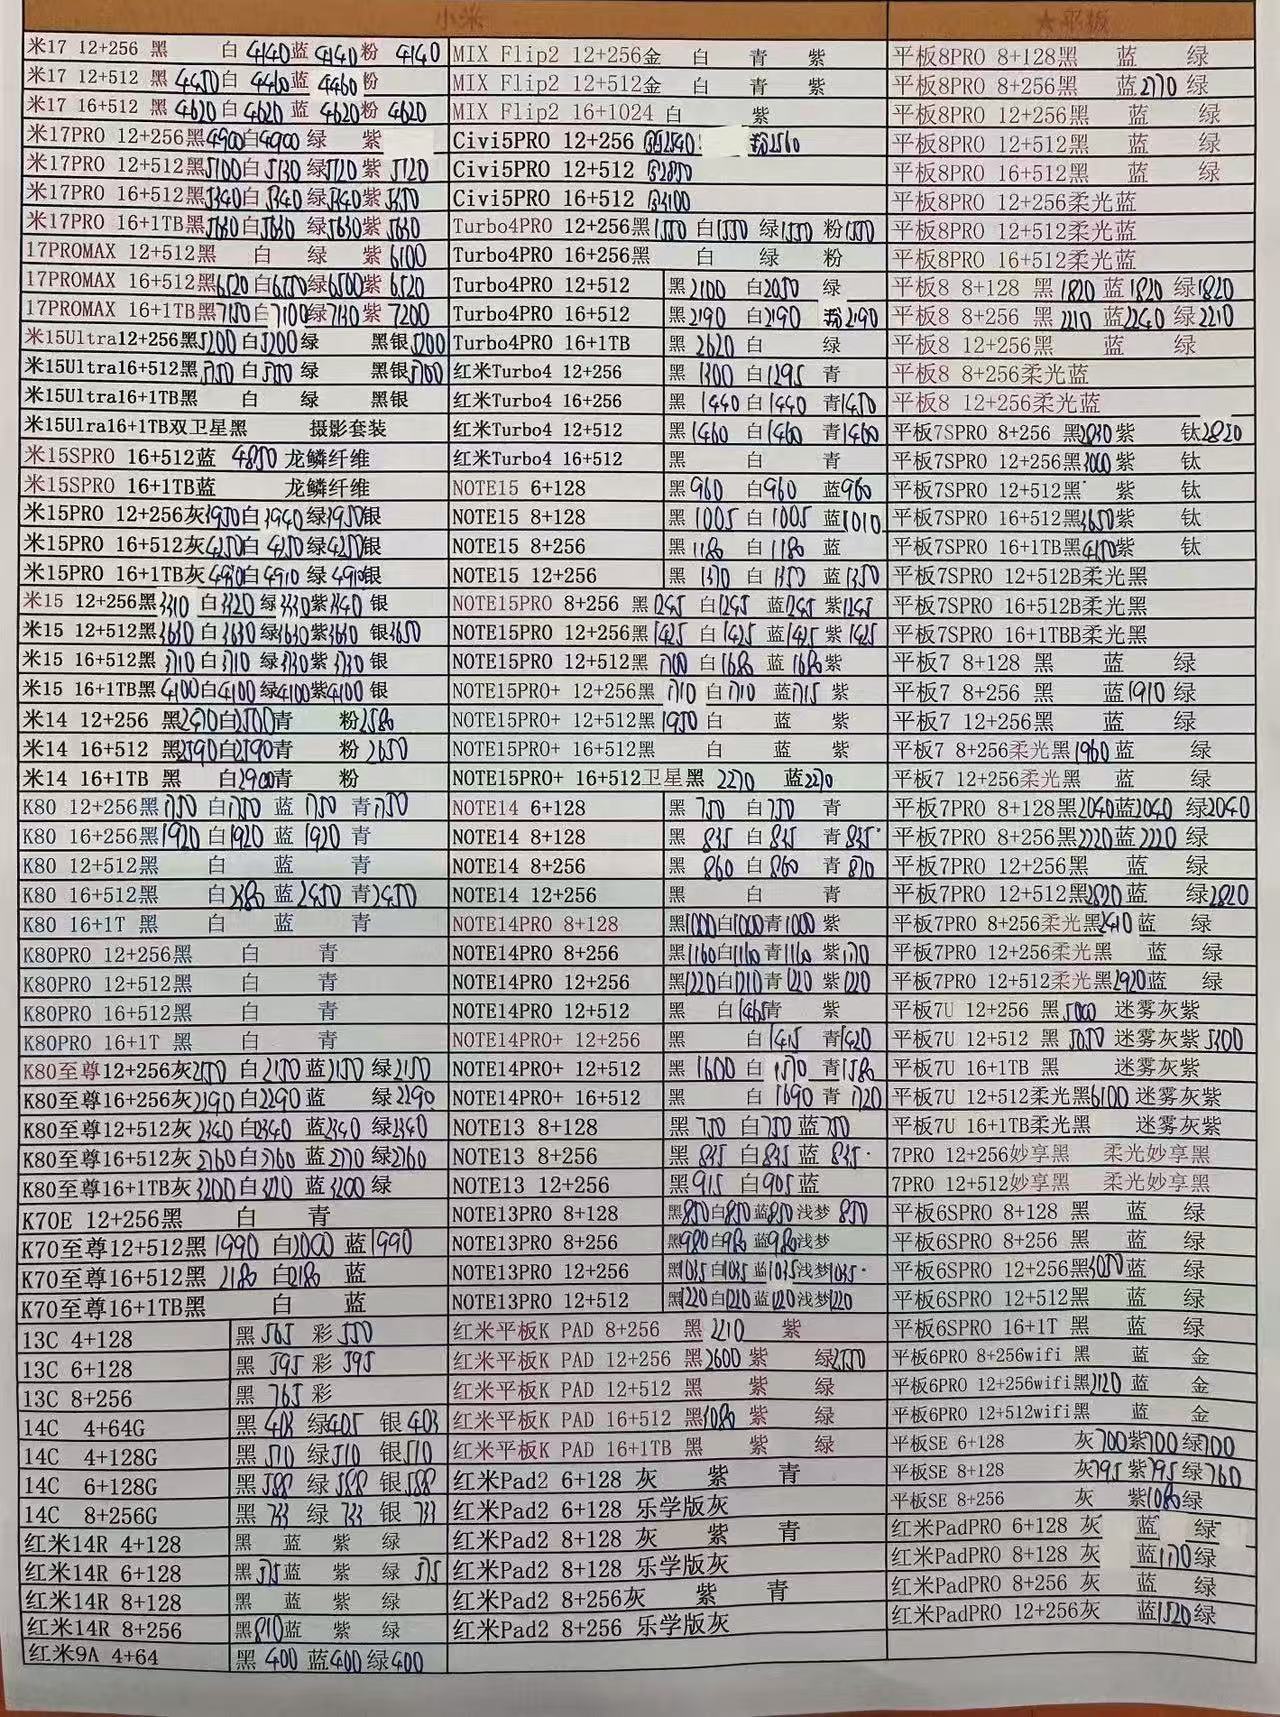 小米
米17 12+256 黑 白4140蓝4140粉 4140
米17 12+512 黑4450白4460蓝4460粉
米17 16+512 黑4620白4620蓝4620粉4620
米17PRO 12+256黑4900白4900绿 紫
米17PRO 12+512黑5100白5130绿5120紫5120
米17PRO 16+512黑5340白5340绿5340紫5350
米17PRO 16+1TB黑5630白5630绿5630紫5630
17PROMAX 12+512黑 白 绿 紫6100
17PROMAX 16+512黑6520白6550绿6500紫6520
17PROMAX 16+1TB黑7150白7100绿7130紫7200
米15Ultra12+256黑5200白5200绿 黑银5200
米15Ultra16+512黑 白 绿 黑银5700
米15Ultra16+1TB黑 白 绿 黑银
米15Ulra16+1TB双卫星黑 摄影套装
米15SPRO 16+512蓝 4850龙鳞纤维
米15SPRO 16+1TB蓝 龙鳞纤维
米15PRO 12+256灰3950白3940绿3950银
米15PRO 16+512灰4250白4250绿4250银
米15PRO 16+1TB灰4910白4910绿4910银
米15 12+256黑3310白3320绿3330紫3340银
米15 12+512黑3630白3630绿3630紫3630银3650
米15 16+512黑3710白3710绿3730紫3730银
米15 16+1TB黑4100白4100绿4100紫4100银
米14 12+256 黑2470白2500青 粉2580
米14 16+512 黑2590白2590青 粉2650
米14 16+1TB 黑 白2900青 粉
K80 12+256黑1750白1750蓝1750青1750
K80 16+256黑1920白1920蓝1920青
K80 12+512黑 白 蓝 青
K80 16+512黑 白2380蓝2450青2450
K80 16+1T 黑 白 蓝 青
K80PRO 12+256黑 白 青
K80PRO 12+512黑 白 青
K80PRO 16+512黑 白 青
K80PRO 16+1T 黑 白 青
K80至尊12+256灰2150白2150蓝2150绿2150
K80至尊16+256灰2290白2290蓝 绿2290
K80至尊12+512灰2340白2340蓝2340绿2340
K80至尊16+512灰2760白2760蓝2770绿2760
K80至尊16+1TB灰3200白3210蓝3200绿
K70E 12+256黑 白 青
K70至尊12+512黑1990白2000蓝1990
K70至尊16+512黑2180白2180蓝
K70至尊16+1TB黑 白 蓝
13C 4+128 黑565彩550
13C 6+128 黑595彩595
13C 8+256 黑765彩
14C 4+64G 黑403绿405银403
14C 4+128G 黑510绿510银510
14C 6+128G 黑588绿588银588
14C 8+256G 黑733绿733银733
红米14R 4+128 黑 蓝 紫 绿
红米14R 6+128 黑575蓝 紫 绿575
红米14R 8+128 黑 蓝 紫 绿
红米14R 8+256 黑810蓝 紫 绿
红米9A 4+64 黑400蓝400绿400
MIX Flip2 12+256金 白 青 紫
MIX Flip2 12+512金 白 青 紫
MIX Flip2 16+1024 白 紫
Civi5PRO 12+256 白2540 粉2560
Civi5PRO 12+512 白2850
Civi5PRO 16+512 白3100
Turbo4PRO 12+256黑1550白1550绿1550粉1550
Turbo4PRO 16+256黑 白 绿 粉
Turbo4PRO 12+512 黑2100白2050绿
Turbo4PRO 16+512 黑2190白2190粉2190
Turbo4PRO 16+1TB 黑2620白 绿
红米Turbo4 12+256 黑1300白1295青
红米Turbo4 16+256 黑1440白1440青1450
红米Turbo4 12+512 黑1460白1460青1460
红米Turbo4 16+512 黑 白 青
NOTE15 6+128 黑960白960蓝960
NOTE15 8+128 黑1005白1005蓝1010
NOTE15 8+256 黑1180白1180蓝
NOTE15 12+256 黑1370白1350蓝1350
NOTE15PRO 8+256 黑1245白1245蓝1245紫1245
NOTE15PRO 12+256黑1425白1425蓝1425紫1425
NOTE15PRO 12+512黑1700白1680蓝1680紫
NOTE15PRO+ 12+256黑1710白1710蓝1715紫
NOTE15PRO+ 12+512黑1950白 蓝 紫
NOTE15PRO+ 16+512黑 白 蓝 紫
NOTE15PRO+ 16+512卫星黑2270蓝2270
NOTE14 6+128 黑750白750青
NOTE14 8+128 黑835白835青835
NOTE14 8+256 黑860白860青870
NOTE14 12+256 黑 白 青
NOTE14PRO 8+128 黑1000白1000青1000紫
NOTE14PRO 8+256 黑1160白1160青1160紫1170
NOTE14PRO 12+256 黑1220白1210青1220紫1220
NOTE14PRO 12+512 黑 白1465青 紫
NOTE14PRO+ 12+256 黑 白1415青1420
NOTE14PRO+ 12+512 黑1600白1570青1580
NOTE14PRO+ 16+512 黑 白1690青1720
NOTE13 8+128 黑750白750蓝750
NOTE13 8+256 黑835白835蓝835
NOTE13 12+256 黑915白905蓝
NOTE13PRO 8+128 黑850白850蓝850浅梦850
NOTE13PRO 8+256 黑980白980蓝980浅梦
NOTE13PRO 12+256 黑1035白1035蓝1035浅梦1035
NOTE13PRO 12+512 黑1220白1220蓝1220浅梦1220
红米平板K PAD 8+256 黑2210紫
红米平板K PAD 12+256 黑2600紫 绿2550
红米平板K PAD 12+512 黑 紫 绿
红米平板K PAD 16+512 黑3080紫 绿
红米平板K PAD 16+1TB 黑 紫 绿
红米Pad2 6+128 灰 紫 青
红米Pad2 6+128 乐学版灰
红米Pad2 8+128 灰 紫 青
红米Pad2 8+128 乐学版灰
红米Pad2 8+256灰 紫 青
红米Pad2 8+256 乐学版灰
★平板
平板8PRO 8+128黑 蓝 绿
平板8PRO 8+256黑 蓝2770绿
平板8PRO 12+256黑 蓝 绿
平板8PRO 12+512黑 蓝 绿
平板8PRO 16+512黑 蓝 绿
平板8PRO 12+256柔光蓝
平板8PRO 12+512柔光蓝
平板8PRO 16+512柔光蓝
平板8 8+128 黑1820蓝1820绿1820
平板8 8+256 黑2210蓝2240绿2210
平板8 12+256黑 蓝 绿
平板8 8+256柔光蓝
平板8 12+256柔光蓝
平板7SPRO 8+256 黑2830紫 钛2820
平板7SPRO 12+256黑3000紫 钛
平板7SPRO 12+512黑 紫 钛
平板7SPRO 16+512黑3650紫 钛
平板7SPRO 16+1TB黑4150紫 钛
平板7SPRO 12+512B柔光黑
平板7SPRO 16+512B柔光黑
平板7SPRO 16+1TBB柔光黑
平板7 8+128 黑 蓝 绿
平板7 8+256 黑 蓝1910绿
平板7 12+256黑 蓝 绿
平板7 8+256柔光黑1960蓝 绿
平板7 12+256柔光黑 蓝 绿
平板7PRO 8+128黑2040蓝2040绿2040
平板7PRO 8+256黑2220蓝2220绿
平板7PRO 12+256黑 蓝 绿
平板7PRO 12+512黑2820蓝 绿2820
平板7PRO 8+256柔光黑2410蓝 绿
平板7PRO 12+256柔光黑 蓝 绿
平板7PRO 12+512柔光黑2920蓝 绿
平板7U 12+256 黑5000迷雾灰紫
平板7U 12+512 黑5050迷雾灰紫5300
平板7U 16+1TB 黑 迷雾灰紫
平板7U 12+512柔光黑6100迷雾灰紫
平板7U 16+1TB柔光黑 迷雾灰紫
7PRO 12+256妙享黑 柔光妙享黑
7PRO 12+512妙享黑 柔光妙享黑
平板6SPRO 8+128 黑 蓝 绿
平板6SPRO 8+256 黑 蓝 绿
平板6SPRO 12+256黑3050蓝 绿
平板6SPRO 12+512黑 蓝 绿
平板6SPRO 16+1T 黑 蓝 绿
平板6PRO 8+256wifi 黑 蓝 金
平板6PRO 12+256wifi黑2120蓝 金
平板6PRO 12+512wifi黑 蓝 金
平板SE 6+128 灰700紫700绿700
平板SE 8+128 灰795紫795绿760
平板SE 8+256 灰 紫1080绿
红米PadPRO 6+128 灰 蓝 绿
红米PadPRO 8+128 灰 蓝1170绿
红米PadPRO 8+256 灰 蓝 绿
红米PadPRO 12+256灰 蓝1520绿